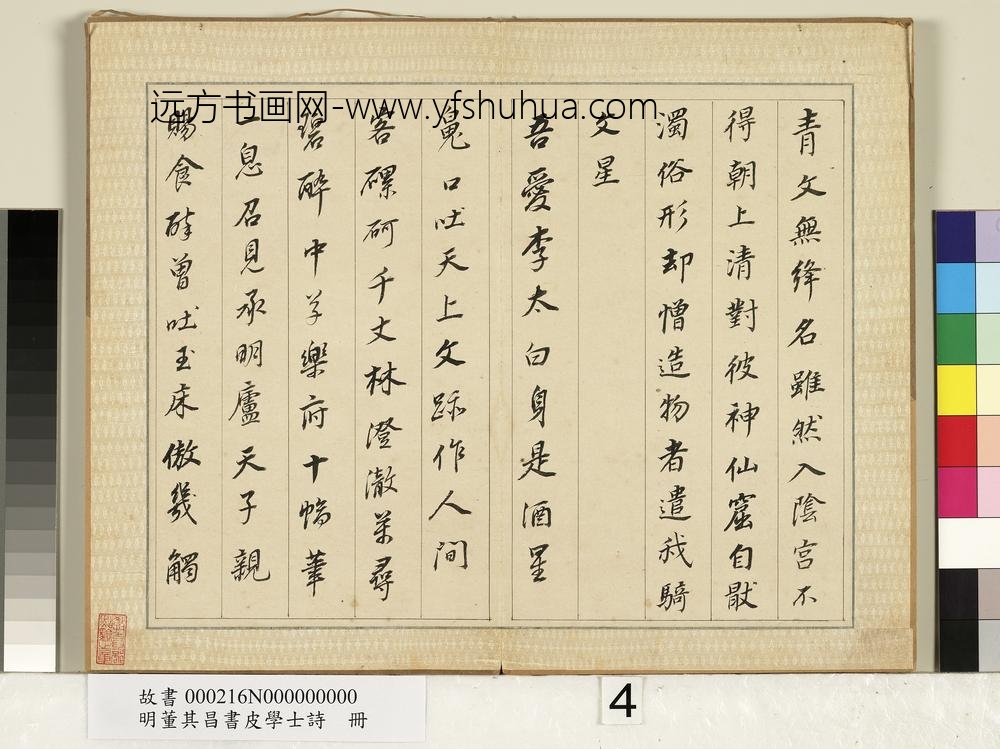 远方书画网-www.yfshuhua.com
青文無絳名雖然入陰宮不
得朝上清對彼神仙窟自厭
濁俗形却憎造物者遣我騎
文星
吾愛李太白身是酒星
魄口吐天上文跡作人間
客磥砢千丈林澄澈萬尋
碧醉中草樂府十幅筆
一息召見承明廬天子親
賜食醉曾吐玉床傲幾觸
故書 000216N000000000
明董其昌書皮學士詩 冊
4